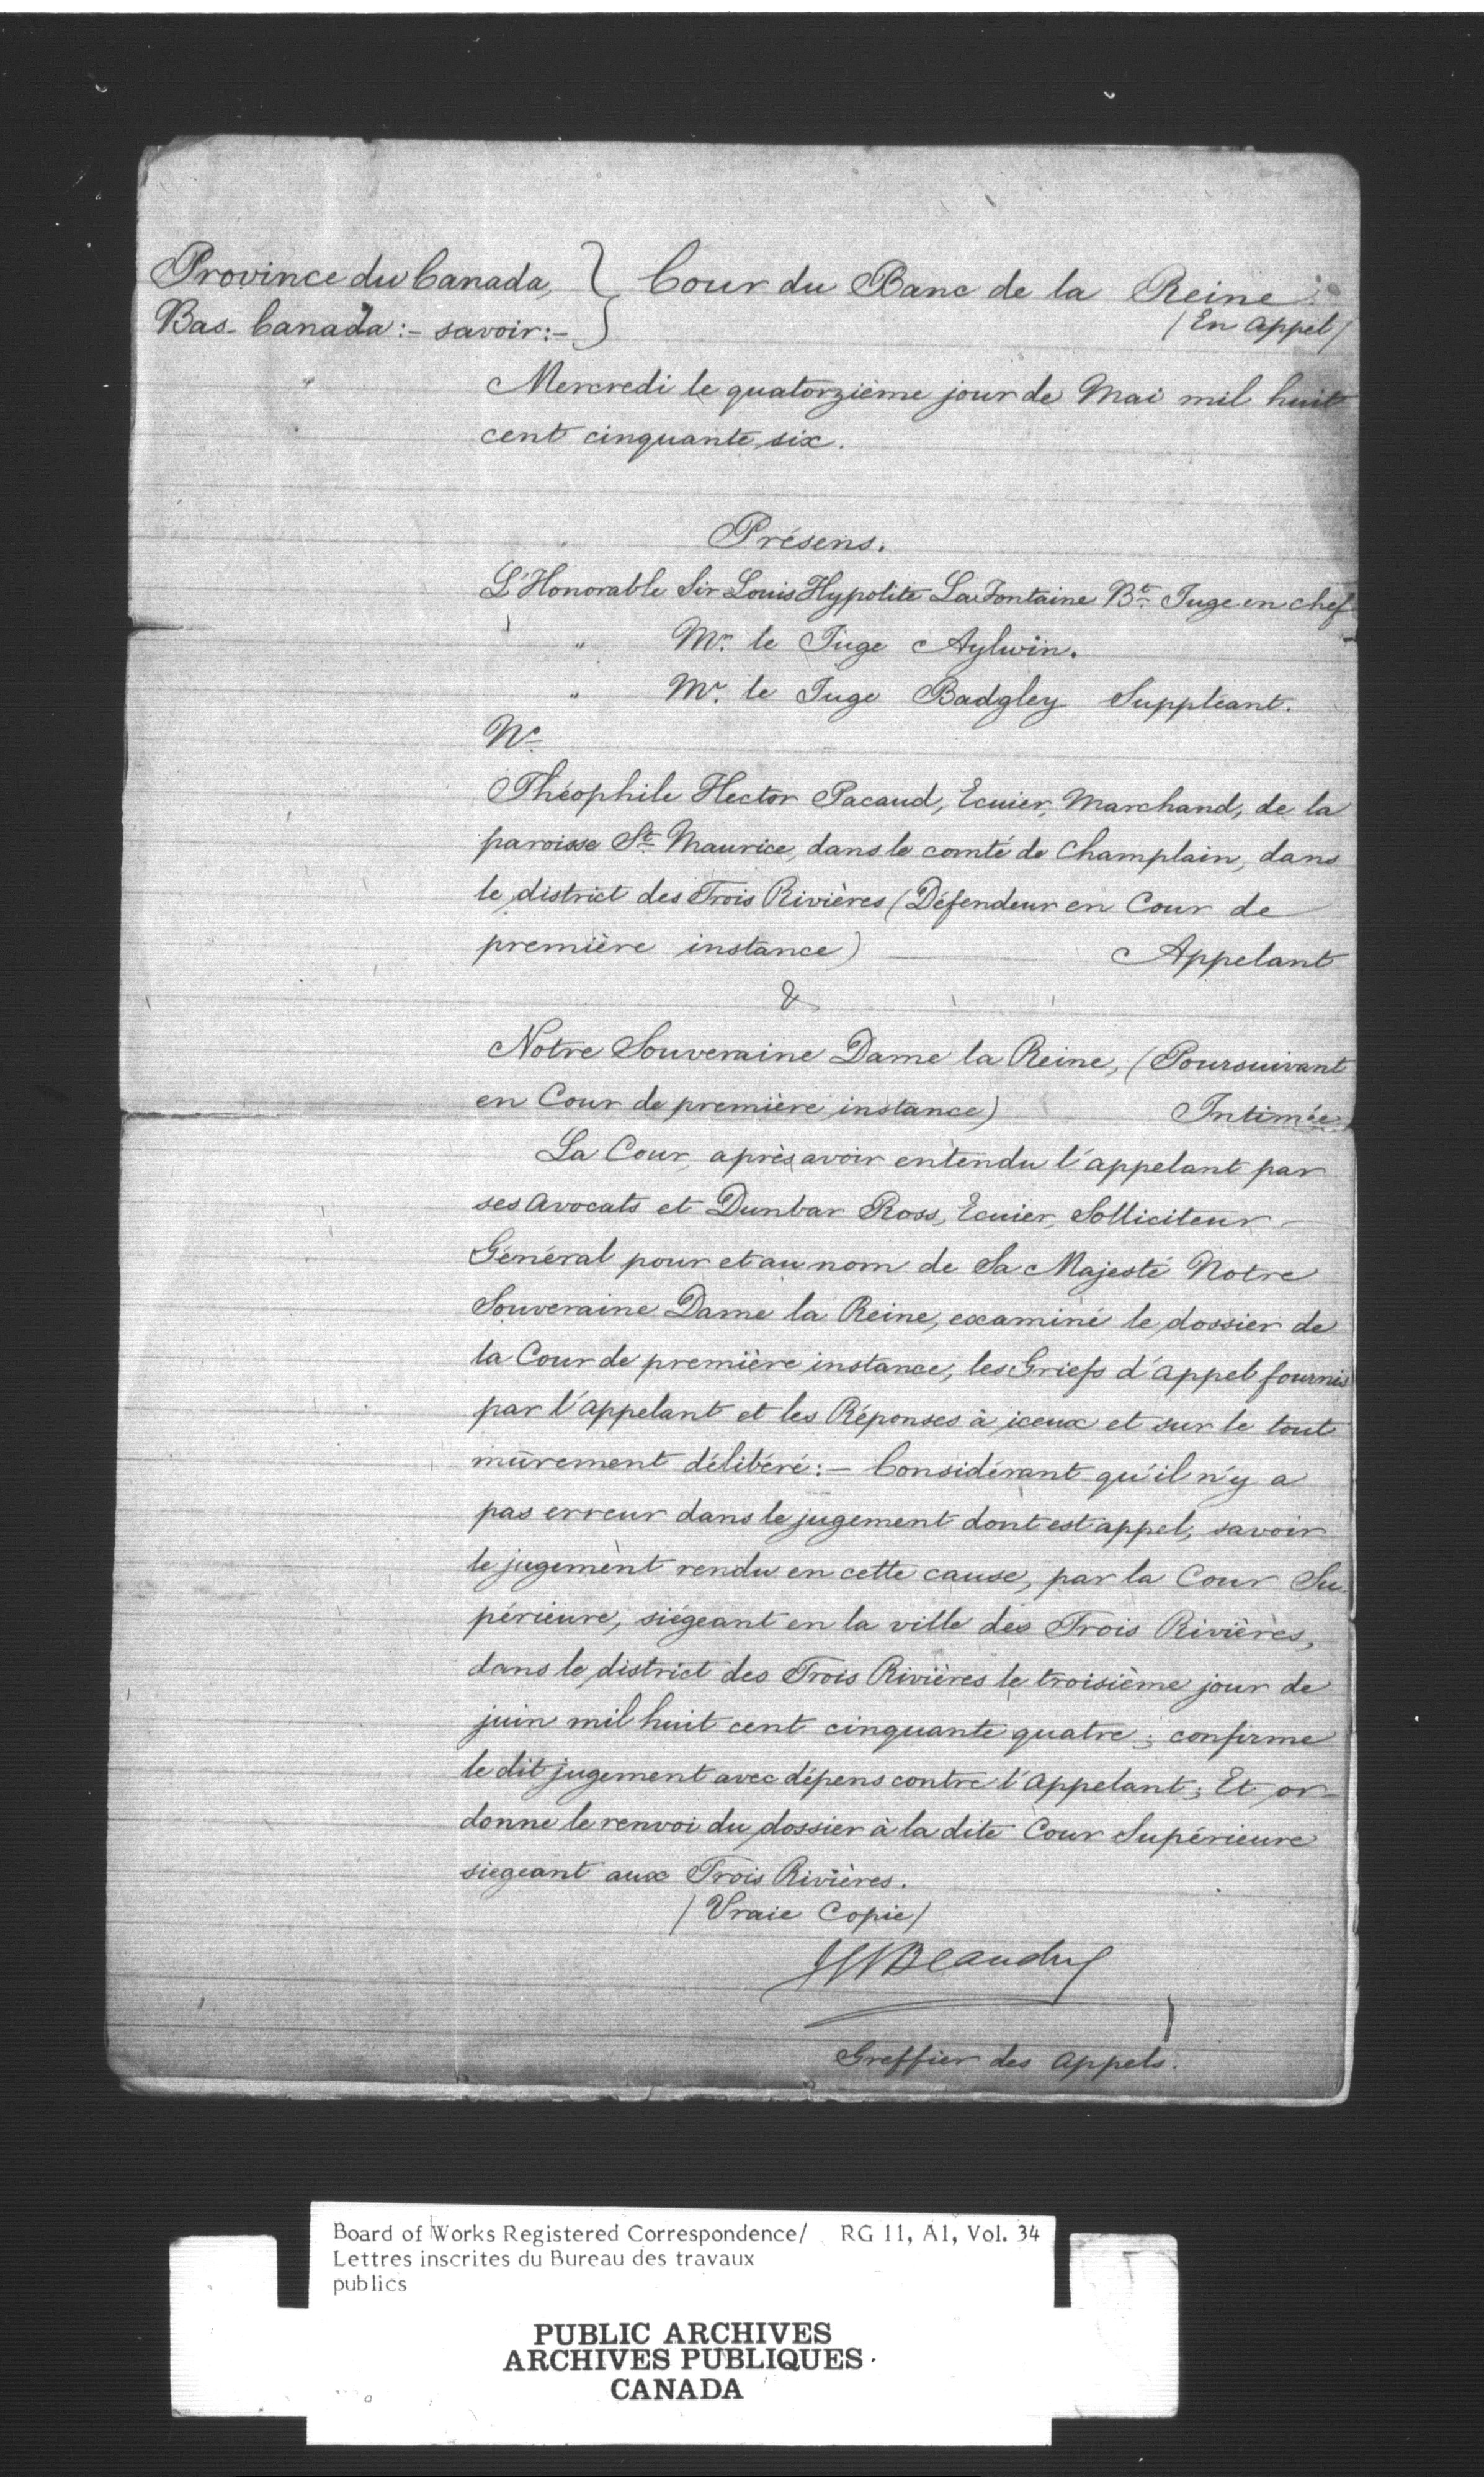 Province du Canada, } Cour du Banc de la Reine
Bas-Canada :- savoir :- } (En Appel)
Mercredi le quatorzième jour de Mai mil huit
cent cinquante six.
Présens.
L'Honorable Sir Louis Hypolite LaFontaine Bt. Juge en chef
" Mr. le Juge Aylwin.
" Mr. le Juge Badgley Suppléant.
No.
Théophile Hector Pacaud, Ecuier, Marchand, de la
paroisse St. Maurice, dans le comté de Champlain, dans
le district des Trois Rivières (Défendeur en Cour de
première instance) Appelant
&
Notre Souveraine Dame la Reine, (Poursuivant
en Cour de première instance) Intimée
La Cour, après avoir entendu l'appelant par
ses Avocats et Dunbar Ross, Ecuier, Solliciteur-
Général pour et au nom de Sa Majesté Notre
Souveraine Dame la Reine, examiné le dossier de
la Cour de première instance, les Griefs d'Appel fournis
par l'Appelant et les Réponses à iceux et sur le tout
mûrement délibéré :- Considérant qu'il n'y a
pas erreur dans le jugement dont est appel, savoir
le jugement rendu en cette cause, par la Cour Su-
périeure, siégeant en la ville des Trois Rivières,
dans le district des Trois Rivières le troisième jour de
juin mil huit cent cinquante quatre ; confirme
le dit jugement avec dépens contre l'Appelant ; Et or-
donne le renvoi du dossier à la dite Cour Supérieure
siegeant aux Trois Rivières.
(Vraie Copie)
Beaudry
Greffier des Appels.
Board of Works Registered Correspondence/ RG 11, A1, Vol. 34
Lettres inscrites du Bureau des travaux
publics
PUBLIC ARCHIVES
ARCHIVES PUBLIQUES
CANADA